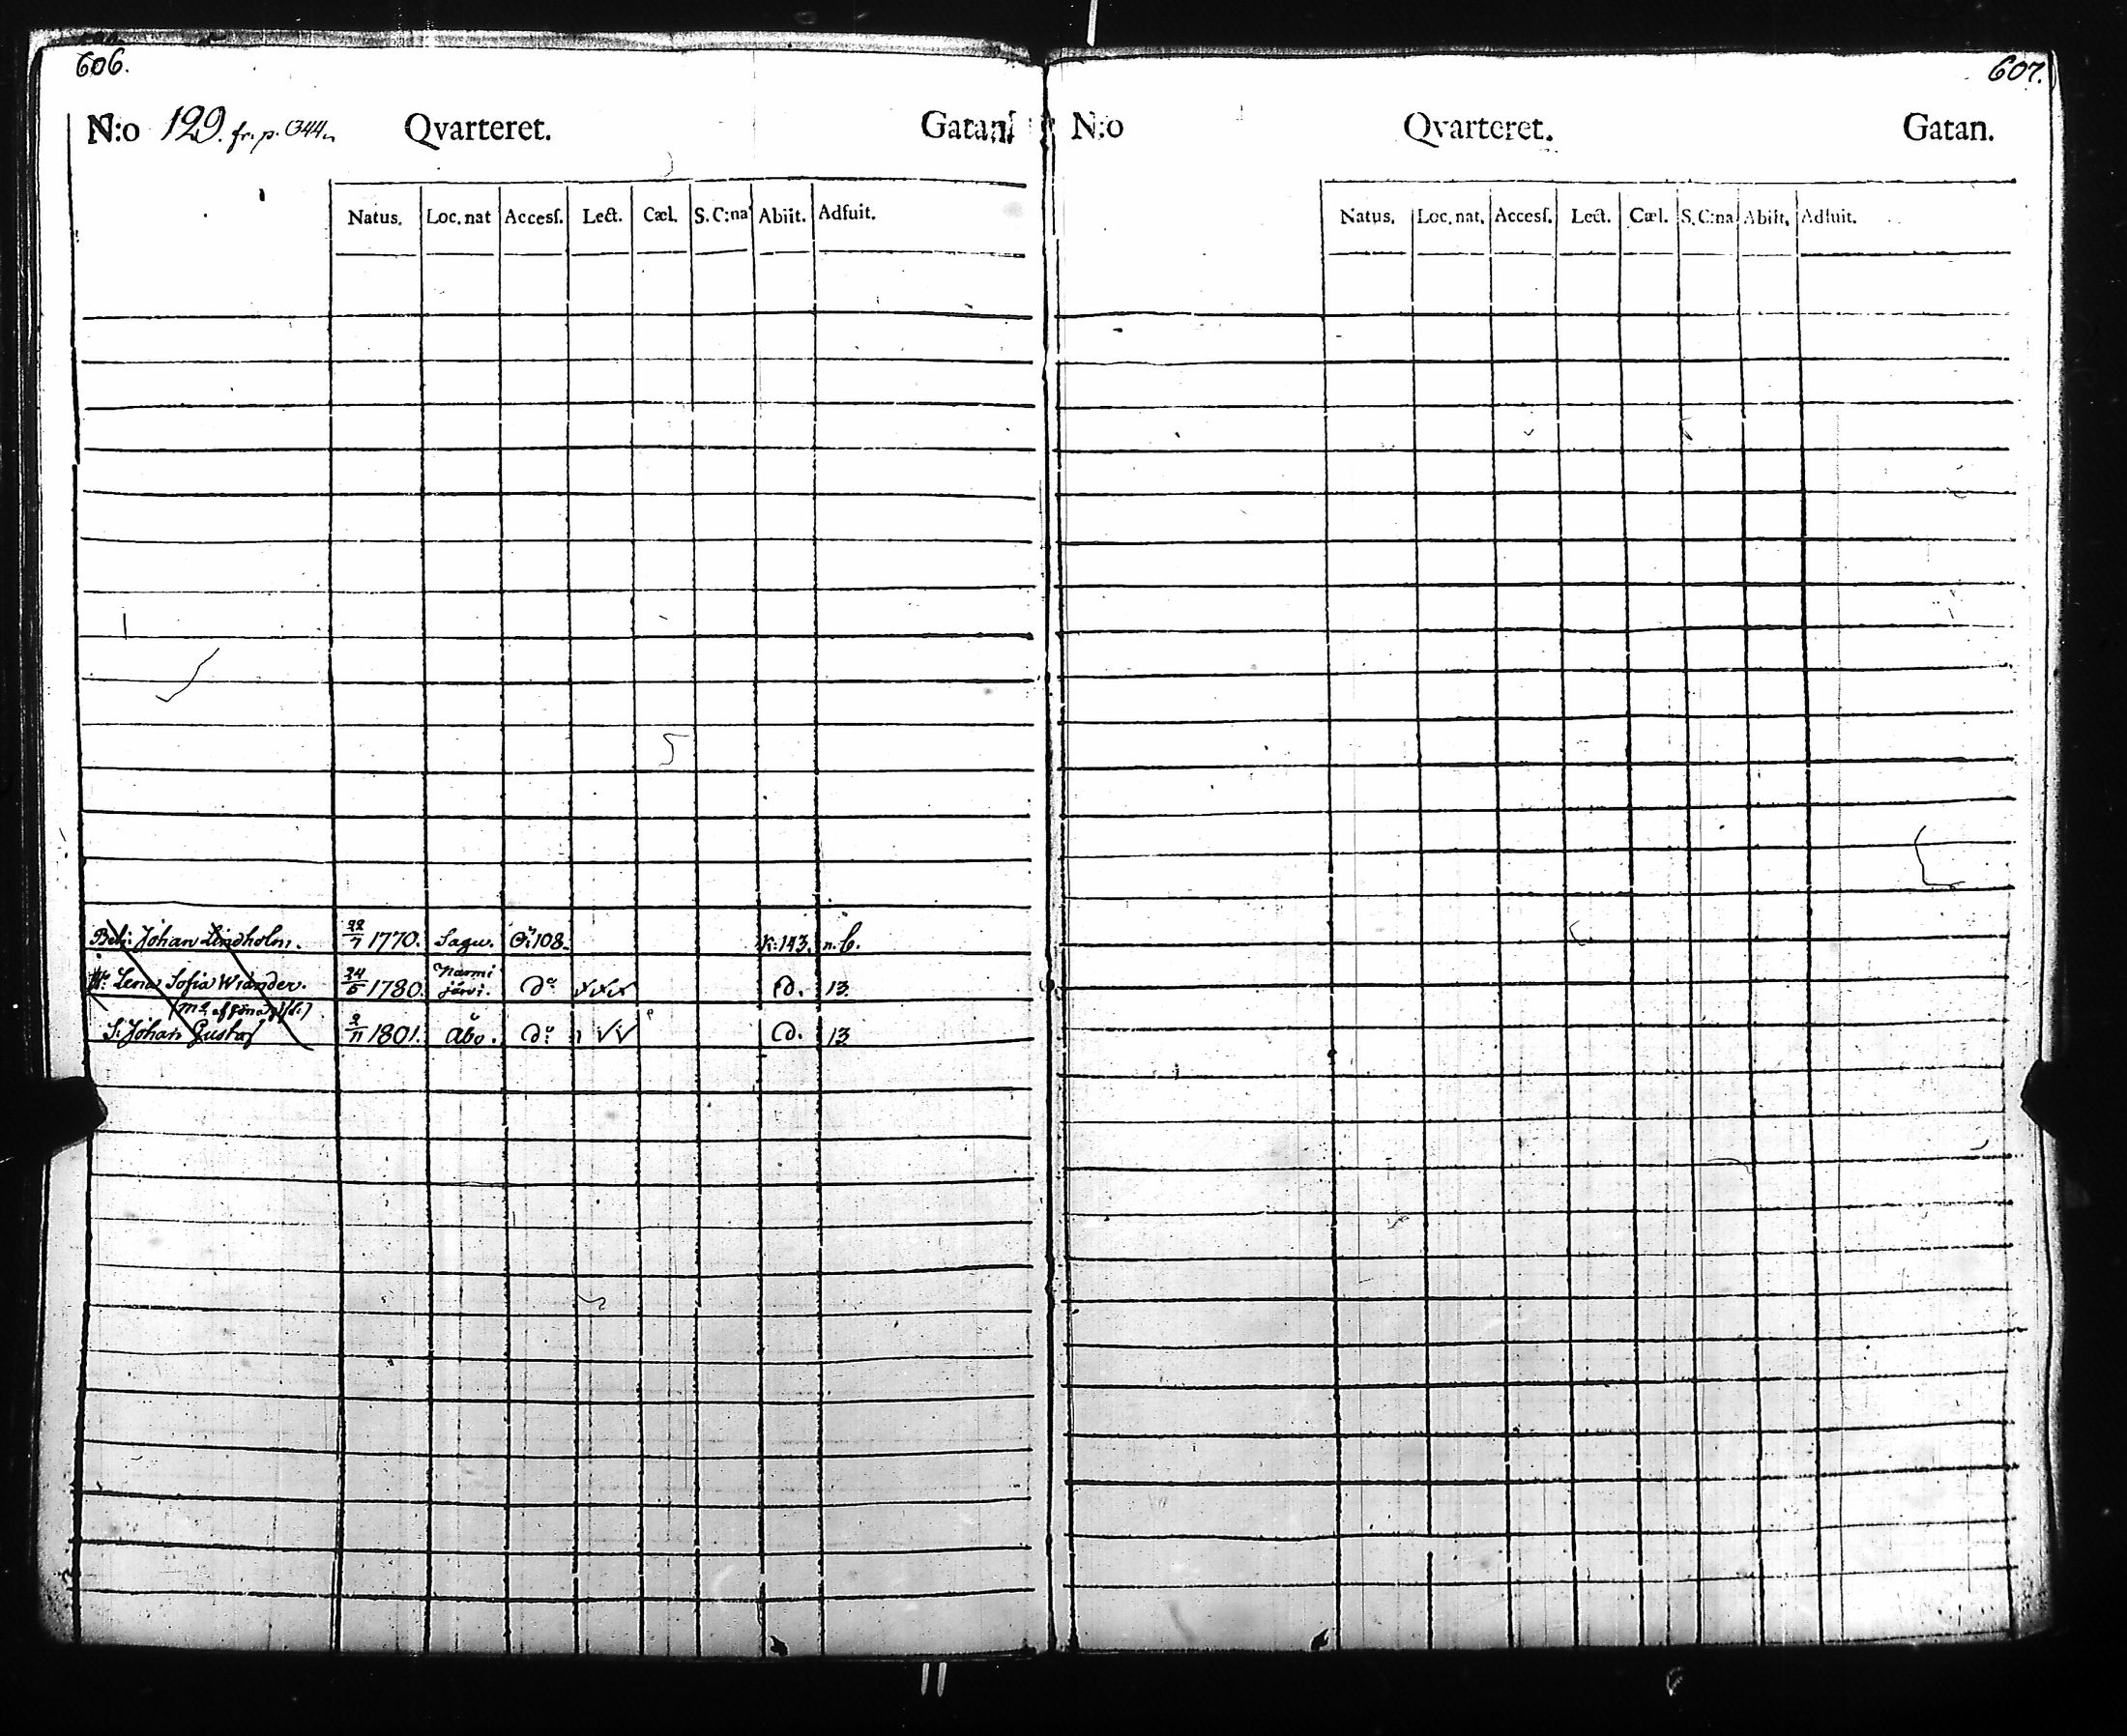 606.
N:o 129. fr. p. 344. Qvarteret. Gatan.
Natus. Loc. nat Accesſ. Lect. Cæl. S. C:na Abiit. Adfuit.
Johan Lindholm. 22/7 1770. Sagu. 108. K: 143. n. b.
H: Lena Sofia Wiander. 24/5 1780. Nurmijärvi. do xxx do. 13.
S: Johan Gustaf 2/11 1801. Åbo. do do. 13
607.
N:o Qvarteret. Gatan.
Natus. Loc. nat. Accesſ. Lect. Cæl. S. C:na Abiit. Adfuit.